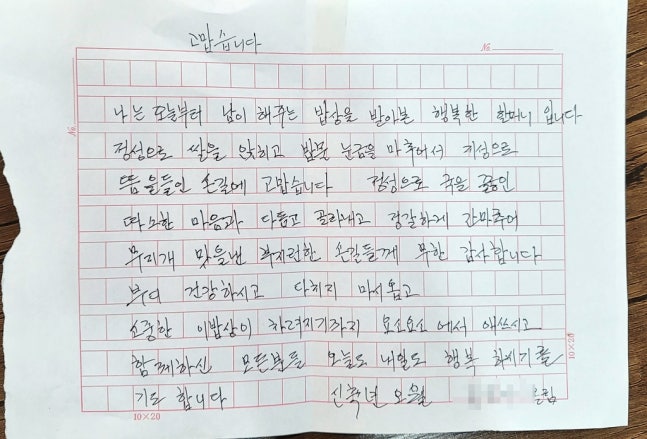 고맙습니다
No.
No.
나는 오늘부터 남이 해주는 밥상을 받아본 행복한 할머니 입니다
정성으로 쌀을 앉히고 밥물 눈금을 마추어서 지성으로
뜸을들인 손길에 고맙습니다 정성으로 국을 끓인
따스한 마음과 다듬고 골라내고 정갈하게 간마추어
무지개 맛을낸 부지런한 손길들께 무한 감사합니다
부디 건강하시고 다치지 마시옵고
소중한 이밥상이 차려지기까지 요소요소에서 애쓰시고
함께하신 모든분들 오늘도 내일도 행복 하시기를
기도 합니다 오월 드림
10×20
10×20